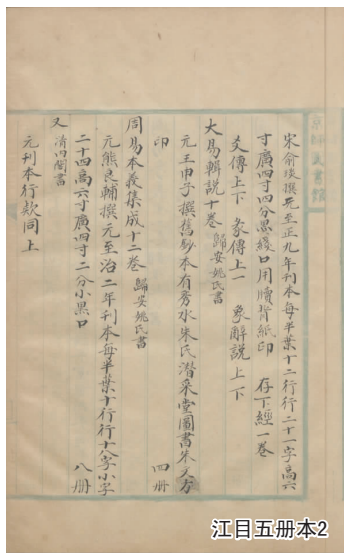 宋俞琰撰元至正九年刊本每半葉十二行行二十一字高六
寸廣四寸四分黑綫口用牘背紙印 存下經一卷
爻傳上下 彖傳上一 象辭說上下
大易輯說十卷 歸安姚氏書
元王申子撰舊鈔本有秀水朱氏潛采堂圖書朱文方
印 四冊
周易本義集成十二卷 歸安姚氏書
元熊良輔撰元至治二年刊本每半葉十行行十八字小字
二十四高六寸廣四寸二分小黑口 八冊
又 清內閣書
元刊本行款同上
京師圖書館
江目五册本2